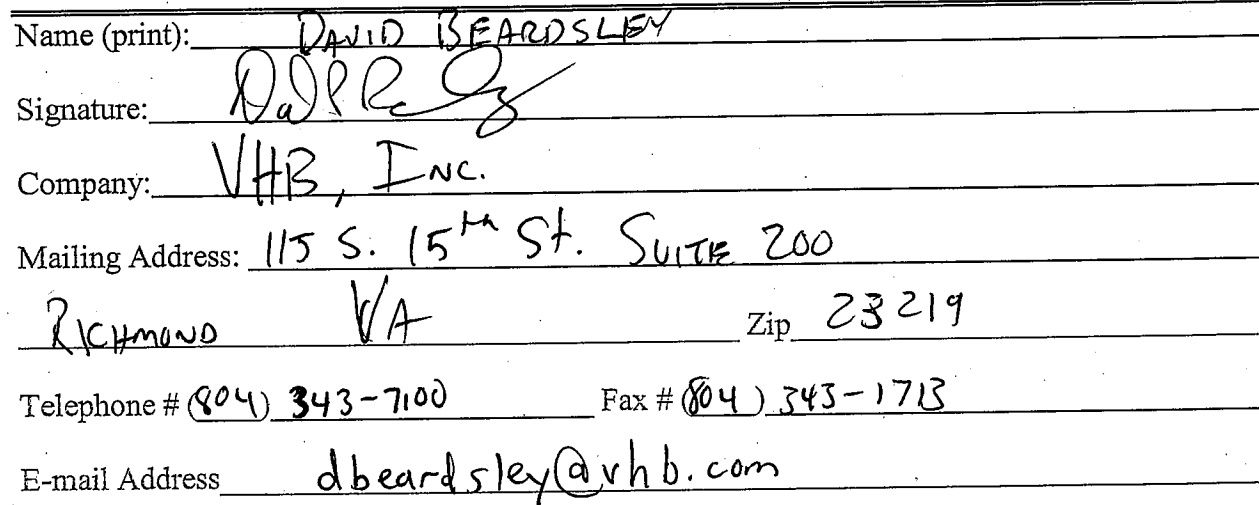 Name (print): DAVID BEARDSLEY
Signature:
Company: VHB, INC.
Mailing Address: 115 S. 15th St. SUITE 200
RICHMOND VA Zip 23219
Telephone # (804) 343-7100 Fax # (804) 343-1713
E-mail Address dbeardsley@vhb.com